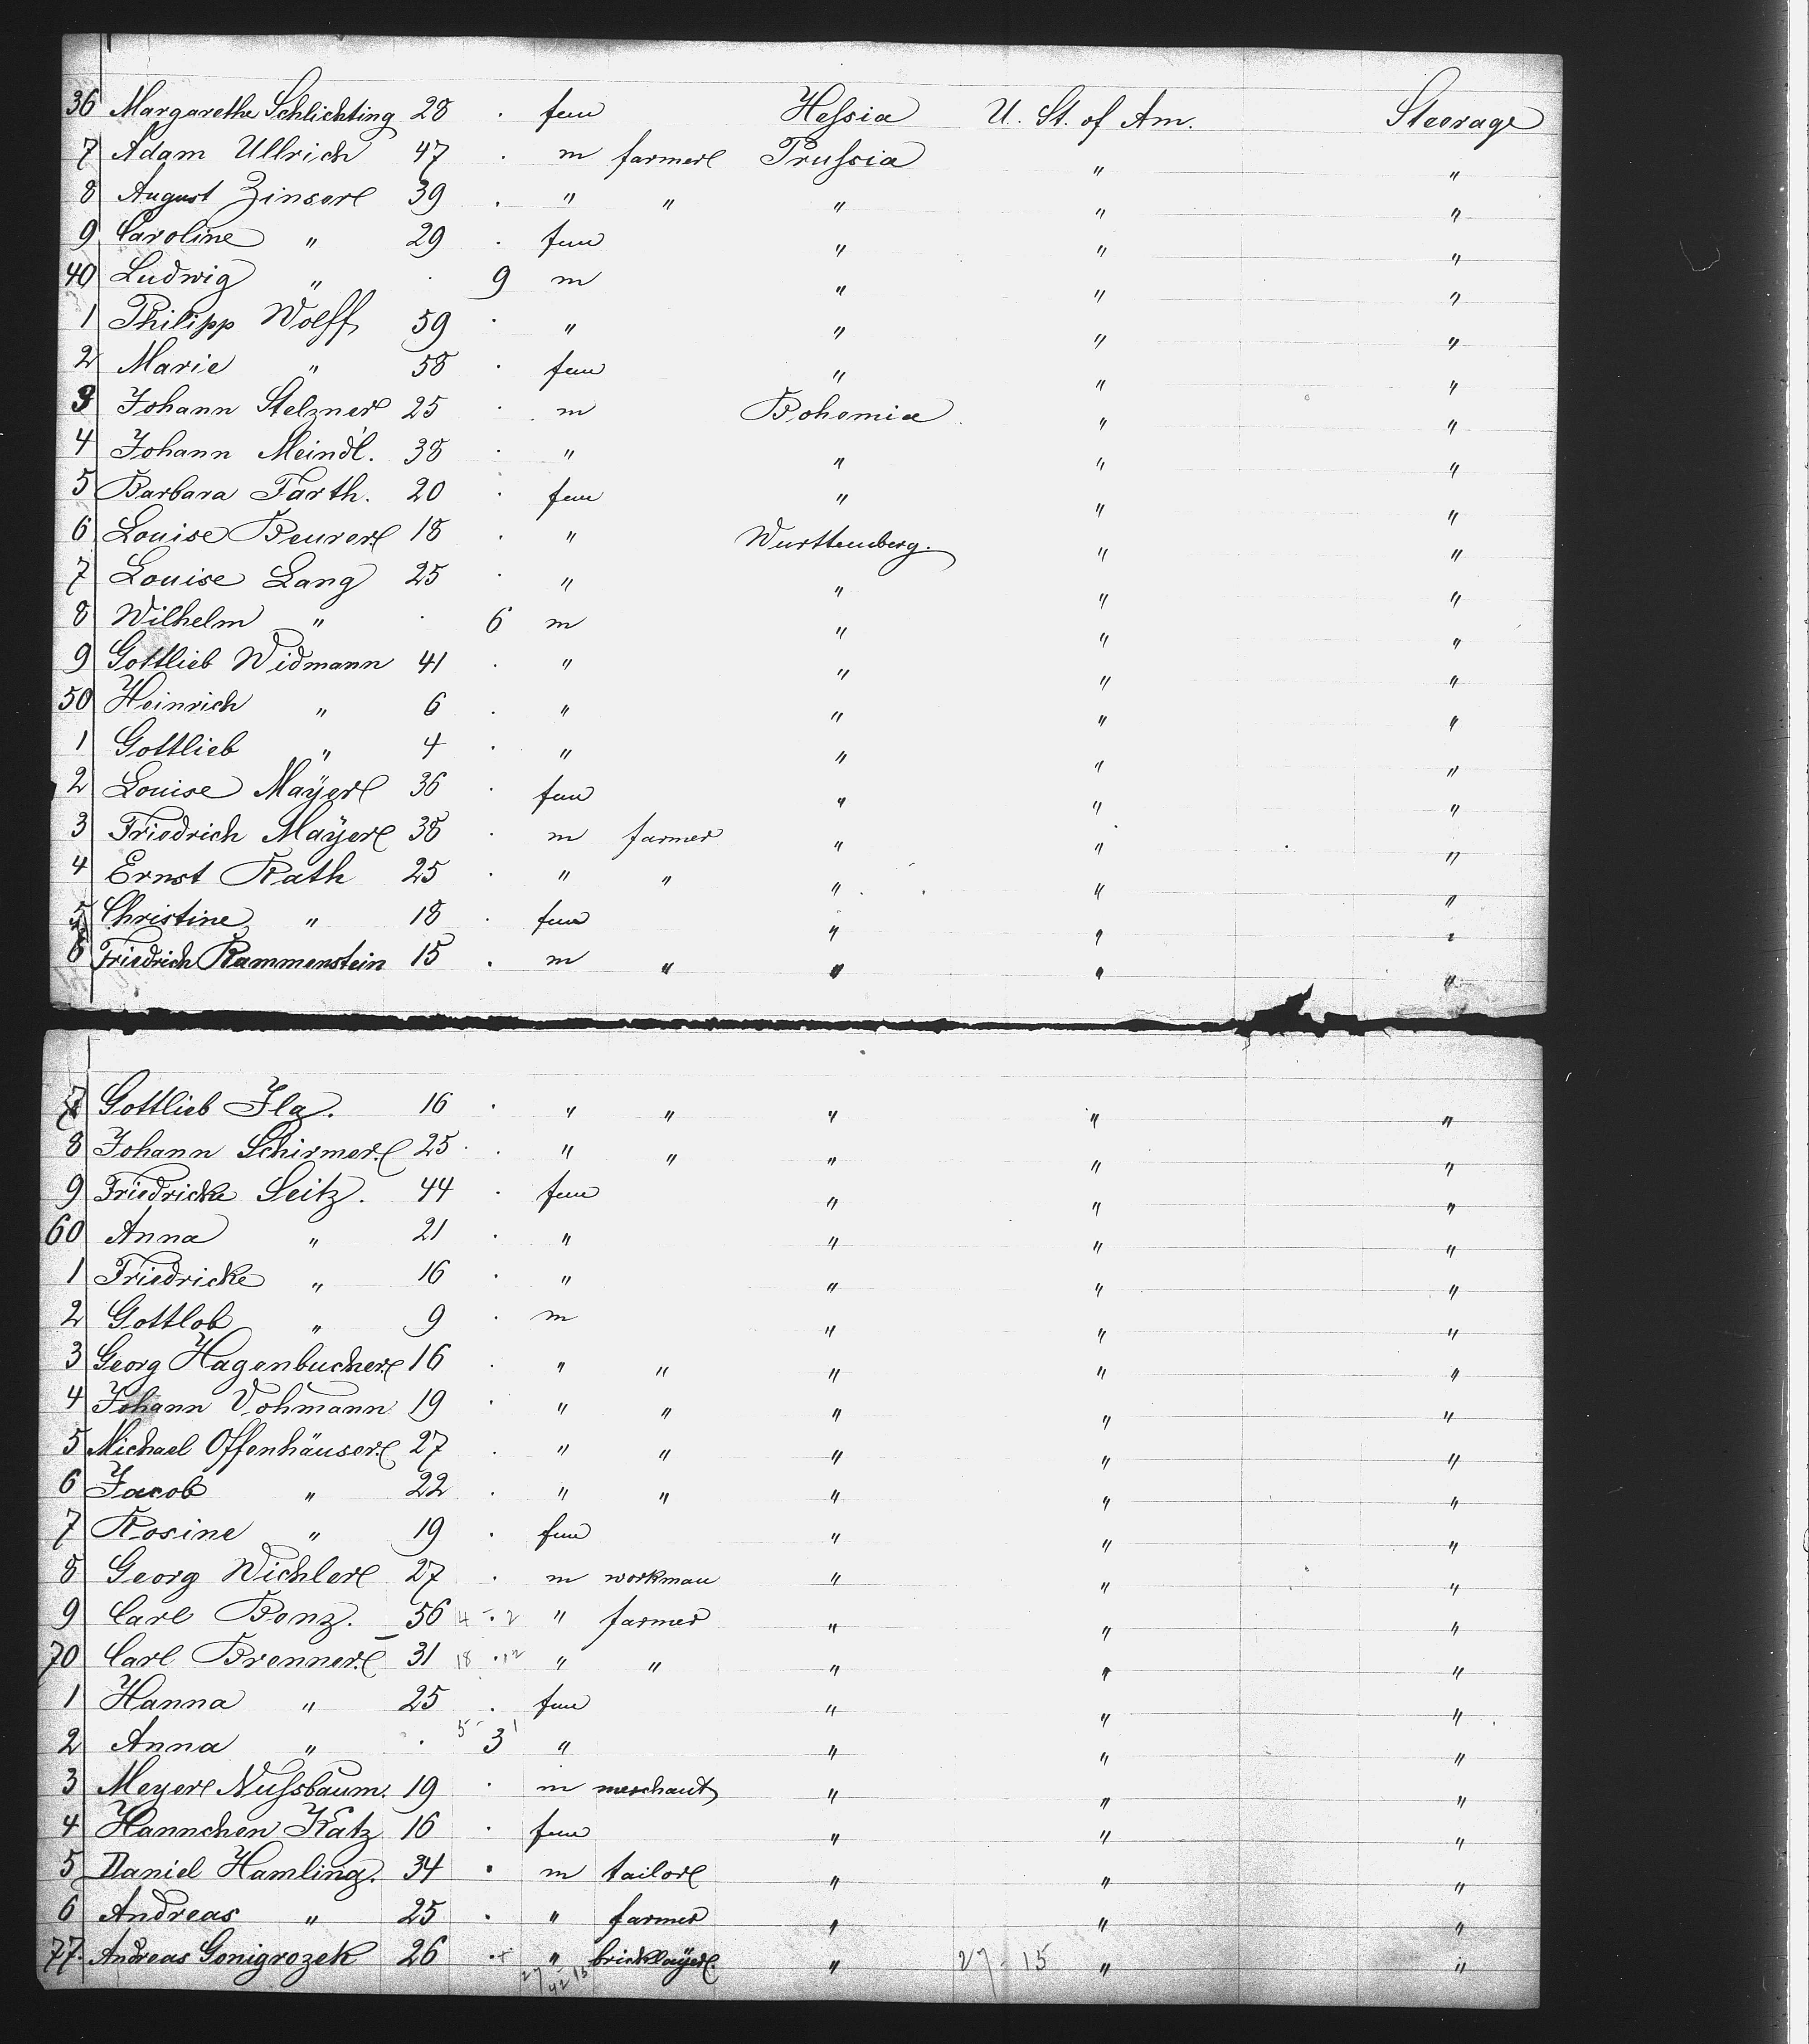 36 Margarethe Schlichting 28 . fem Hessia U. St. of Am. Steerage
7 Adam Ullrich 47 . m farmer Prussia " "
8 August Zinser 39 . " " " " "
9 Caroline " 29 . fem " " "
40 Ludwig " . 9 m " " "
1 Philipp Wolff 59 . " " " "
2 Marie " 58 . fem " " "
3 Johann Stelzner 25 . m Bohemia " "
4 Johann Meindl. 38 . " " " "
5 Barbara Farth. 20 . fem " " "
6 Louise Beurer 18 . " Wurttemberg. " "
7 Louise Lang 25 . " " " "
8 Wilhelm " . 6 m " " "
9 Gottlieb Widmann 41 . " " " "
50 Heinrich " 6 . " " " "
1 Gottlieb " 4 . " " " "
2 Louise Mayer 36 . fem " " "
3 Friedrich Mayer 38 . m farmer " " "
4 Ernst Rath 25 . " " " " "
5 Christine " 18 . fem " " "
6 Friedrich Rammenstein 15 . m " " " "
7 Gottlieb Ilg. 16 . " " " " "
8 Johann Schirmer. 25 . " " " " "
9 Friedricke Seitz. 44 . fem " " "
60 Anna " 21 . " " " "
1 Friedricke " 16 . " " " "
2 Gottlob " 9 . m " " "
3 Georg Hagenbucher. 16 . " " " " "
4 Johann Vohmann 19 . " " " " "
5 Michael Offenhäuser. 27 . " " " " "
6 Jacob " 22 . " " " " "
7 Rosine " 19 . fem " " "
8 Georg Wichler 27 . m workman " " "
9 Carl Bonz. 56 4 - 2 " farmer " " "
70 Carl Brenner. 31 18 . 12 " " " " "
1 Hanna " 25 . fem " " "
2 Anna " . 5 - 1 3 " " " "
3 Meyer Nussbaum. 19 . m merchant " " "
4 Hannchen Katz 16 . fem " " "
5 Daniel Hamling. 34 . m tailor " " "
6 Andreas " 25 . " farmer " " "
77. Andreas Gonigrozek 26 . + " bricklayer. " 27 - 15 " "
27 - 15
42